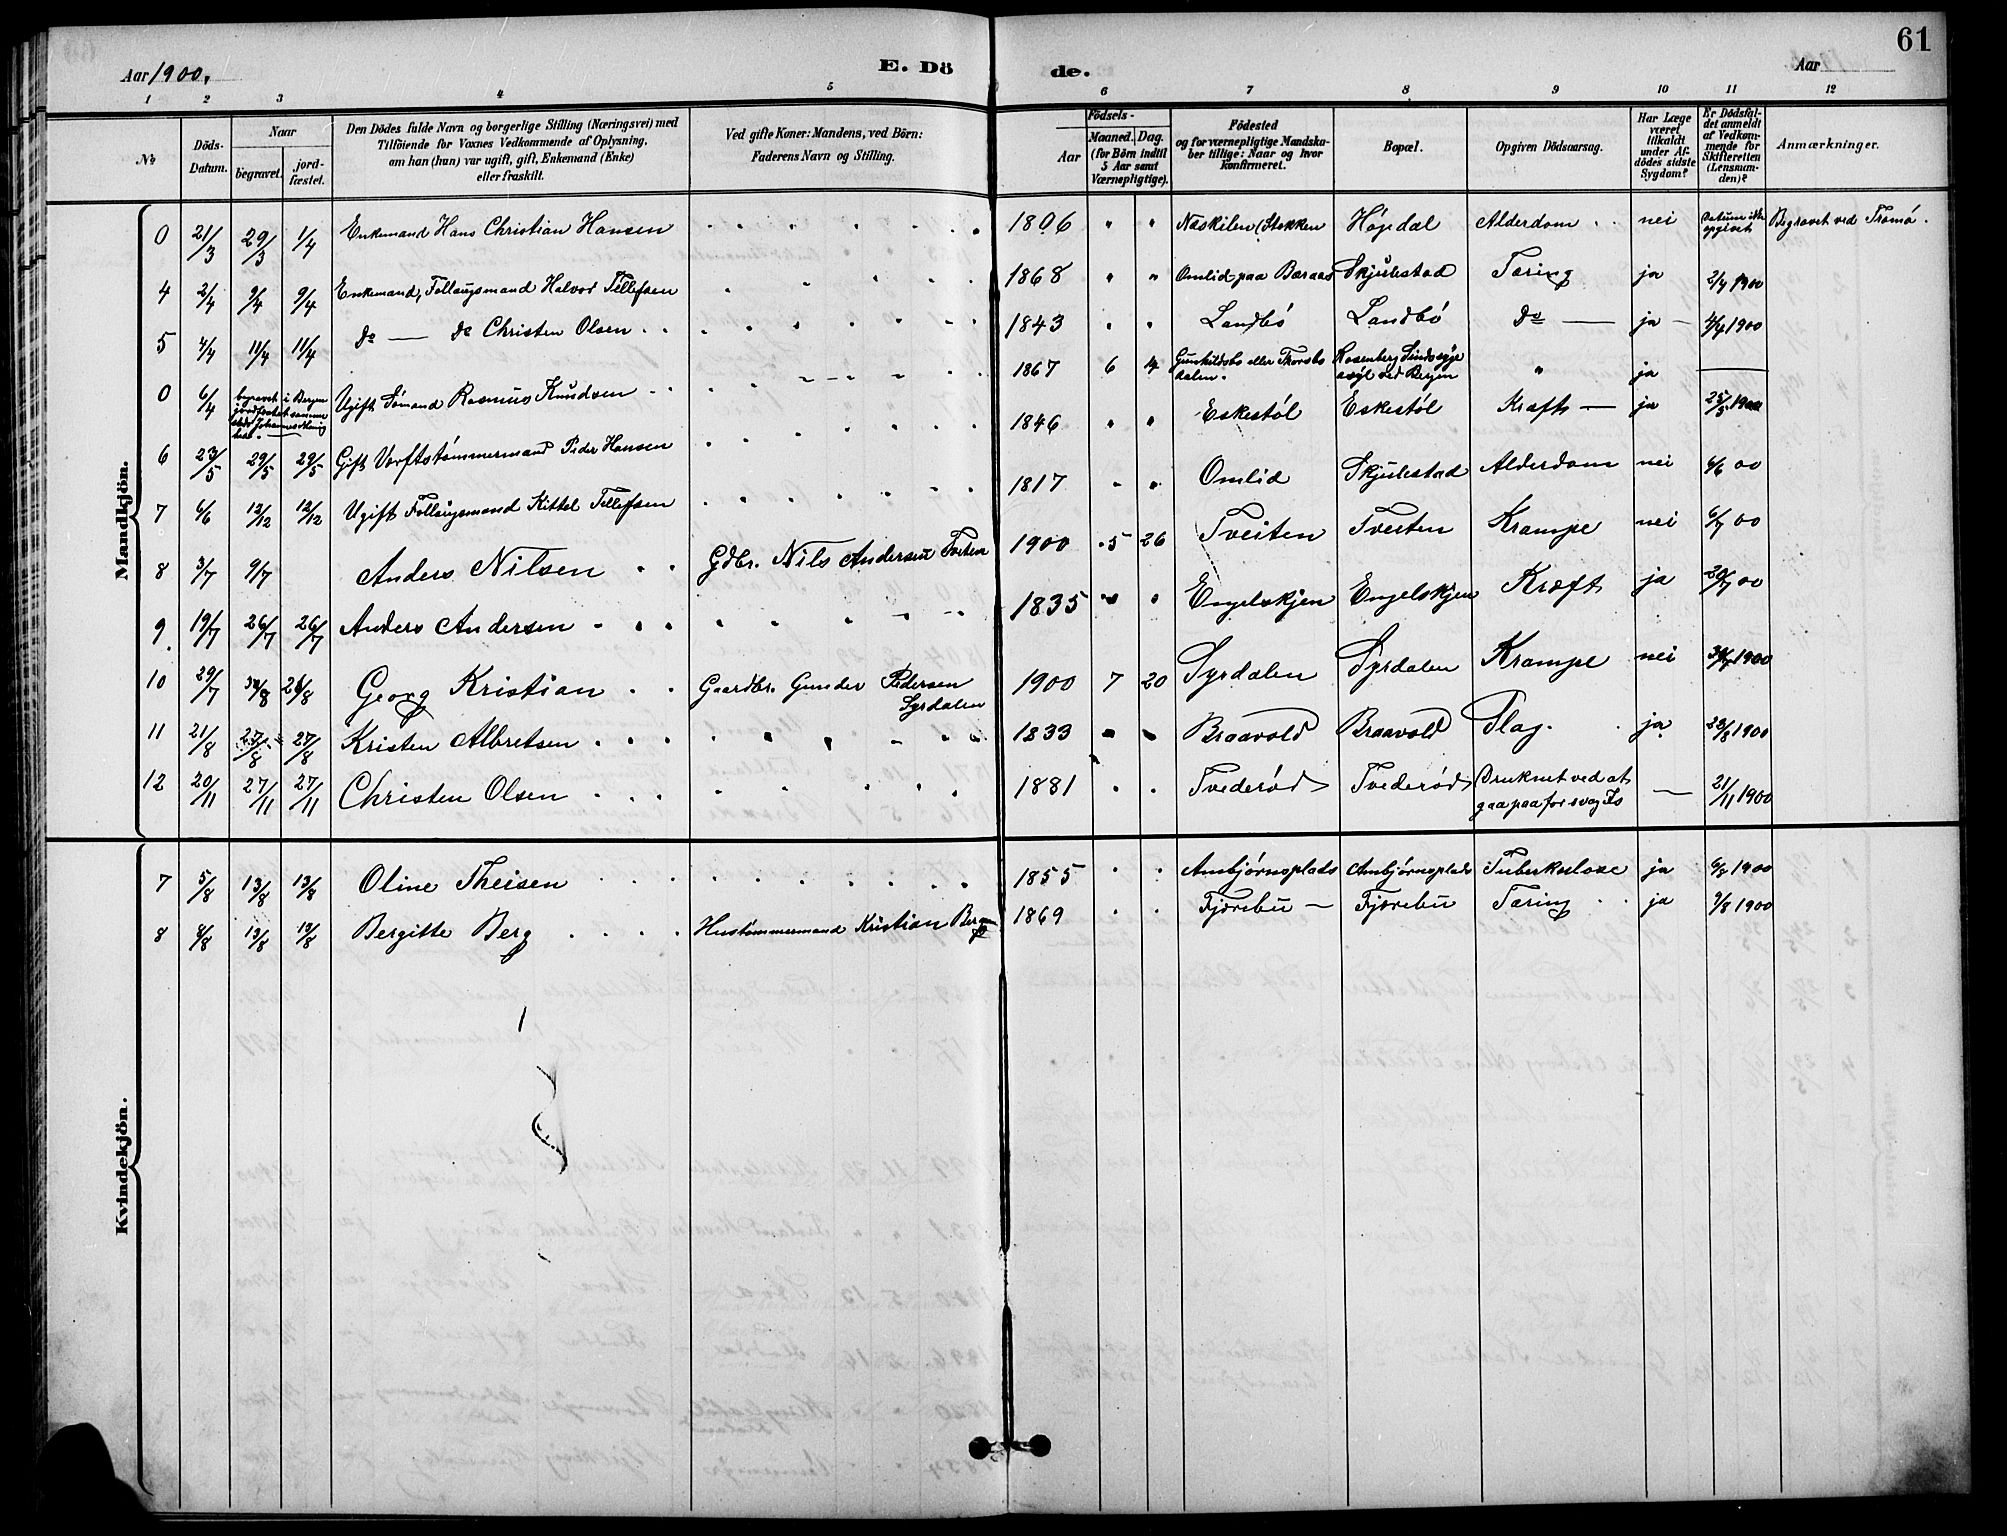 61
Aar 1900.
E. Dö
de.
Aar
1 2 3 4 5 6 7 8 9 10 11 12
No
Döds-Datum.
Naar
begravet.
jord-fæstet.
Den Dödes fulde Navn og borgerlige Stilling (Næringsvei) med
Tilföiende for Voxnes Vedkommende af Oplysning,
om han (hun) var ugift, gift, Enkemand (Enke)
eller fraskilt.
Ved gifte Koner: Mandens, ved Börn:
Faderens Navn og Stilling.
Födsels-
Aar
Maaned. Dag.
(for Börn indtil
5 Aar samt
Værnepligtige).
Födested
og for værnepligtige Mandska-
ber tillige: Naar og hvor
konfirmeret.
Bopæl.
Opgiven Dödsaarsag.
Har Læge
været
tilkaldt
under Af-
dödes sidste
Sygdom?
Er Dödsfal-
det anmeldt
af Vedkom-
mende for
Skifteretten
(Lensman-
den)?
Anmærkninger.
Mandkjön.
0 21/3 29/3 1/4 Enkemand Hans Christian Hansen 1806 " " Næskilen (Stokken Højedal Alderdom nei Datum ikke opgivet Begravet ved Tromø.
4 2/4 9/4 9/4 Enkemand, Follaugsmand Halvor Tellefsen 1868 " " Omlid paa Baraas Skjulestad Tæring ja 2/4 1900
5 4/4 11/4 11/4 do — do Christen Olsen 1843 " " Landbö Landbö do — ja — 4/4 1900
0 6/4 begravet i Bergen Ugift Sömand Rasmus Knudsen 1867 6 4 Gunhildsbo eller Thorsbo dalen. Rosenberg Sindssyge asyl ved Bergen " ja —
6 23/5 29/5 29/5 Gift Verftstömmermand Peder Hansen 1846 " " Eskestøl Eskestøl Kræft — ja 25/5 1900
7 6/6 12/12 12/12 Ugift Follaugsmand Kittel Tellefsen 1817 " " Omlid Skjulestad Alderdom nei 6/6 00
8 3/7 9/7 Anders Nilsen Gdbr. Nils Andersen Tveten 1900 5 26 Tveiten Tveiten Krampe nei 6/7 00
9 19/7 26/7 26/7 Anders Andersen 1835 " " Engelskjen Engelskjen Kræft ja 20/7 00
10 29/7 Georg Kristian Gaardbr. Gunder Pedersen Syrdalen 1900 7 20 Syrdalen Syrdalen Krampe nei 1900
11 21/8 27/8 27/8 Kristen Albretsen 1833 " " Braavold Braavold Slag. ja 1900
12 20/11 27/11 27/11 Christen Olsen 1881 " " Tvederød Tvederød Druknet ved at gaa paa for svag Is — 21/11 1900
Kvindekjön.
7 5/8 13/8 13/8 Oline Theisen 1855 " " Ambjørnsplads Ambjørnsplads Tuberkulose ja 6/8 1900
8 8/8 13/8 13/8 Bergitte Berg Hustømmermand Kristian Berg 1869 " " Fjørebu — Fjørebu Tæring ja 9/8 1900